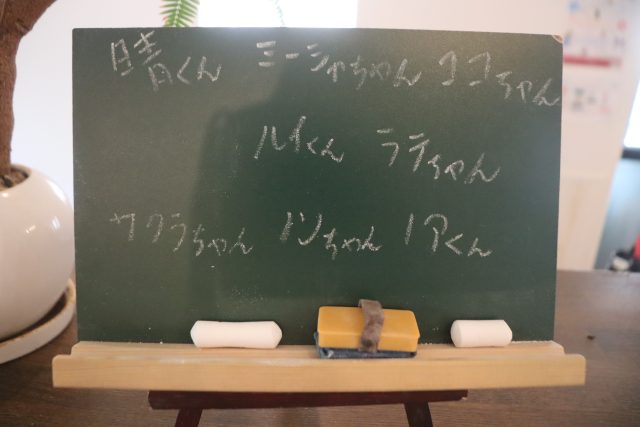 晴くん ミーシャちゃん ココちゃん
ルイくん ラテちゃん
サクラちゃん ノンちゃん ノアくん